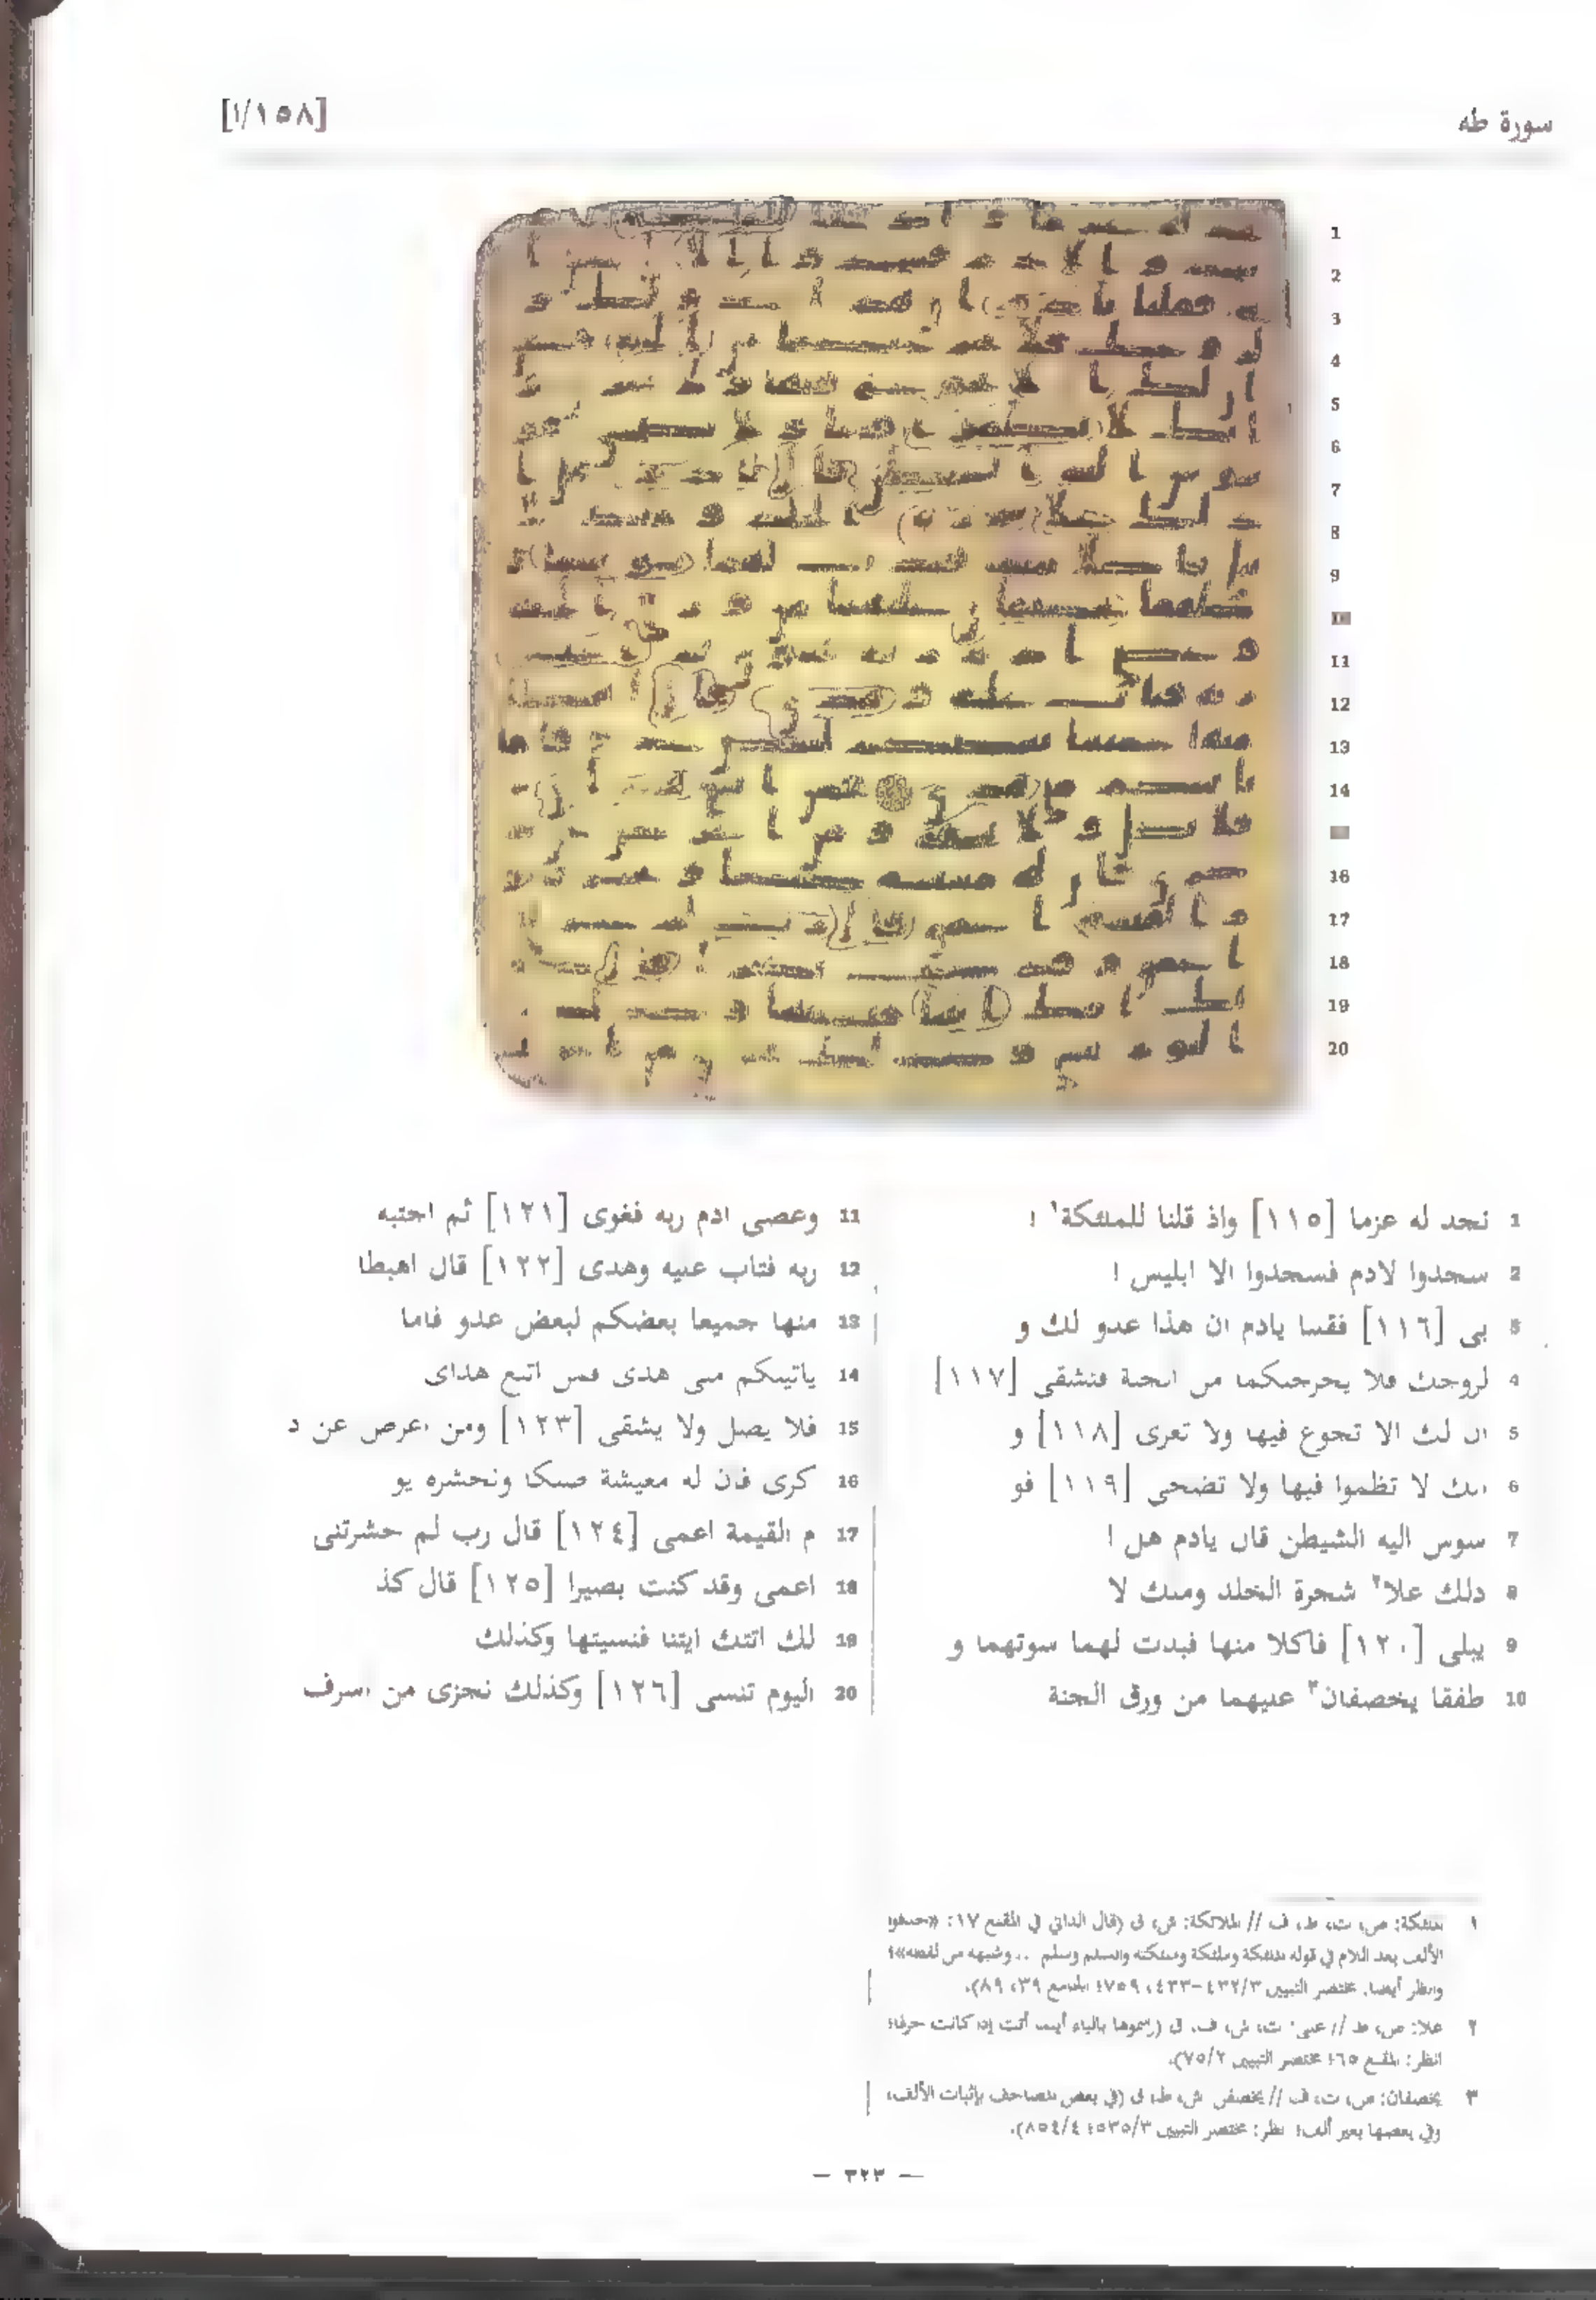 سورة طه
[١٥٨/ا]
1 نجد له عزما [١١٥] واذ قلنا للملئكة١ ا
2 سجدوا لادم فسجدوا الا ابليس ا
3 بى [١١٦] فقلنا يادم ان هذا عدو لك و
4 لزوجك فلا يخرجنكما من الجنة فتشقى [١١٧]
5 ان لك الا تجوع فيها ولا تعرى [١١٨] و
6 انك لا تظموا فيها ولا تضحى [١١٩] فو
7 سوس اليه الشيطن قال يادم هل ا
8 دلك علا٢ شجرة الخلد وملك لا
9 يبلى [١٢٠] فاكلا منها فبدت لهما سوتهما و
10 طفقا يخصفان٣ عليهما من ورق الجنة
11 وعصى ادم ربه فغوى [١٢١] ثم اجتبه
12 ربه فتاب عليه وهدى [١٢٢] قال اهبطا
13 منها جميعا بعضكم لبعض عدو فاما
14 ياتينكم منى هدى فمن اتبع هداى
15 فلا يضل ولا يشقى [١٢٣] ومن اعرض عن ذ
16 كرى فان له معيشة ضنكا ونحشره يو
17 م القيمة اعمى [١٢٤] قال رب لم حشرتنى
18 اعمى وقد كنت بصيرا [١٢٥] قال كذ
19 لك اتتك ايتنا فنسيتها وكذلك
20 اليوم تنسى [١٢٦] وكذلك نجزى من اسرف
١ ملئكة: ص، ت، ط، ف // الملائكة: ش، ق (قال الداني في المقنع ١٧: «حذفوا
الألف بعد اللام في قوله ملئكة وملئكة وملئكته والسلم وسلم ... وشبهه من لفظه»؛
وانظر أيضا: مختصر التبيين ٤٣٢/٣-٤٣٣، ٧٥٩؛ الجامع ٣٩، ٨٩).
٢ علا: ص، ط // على: ت، ش، ف، ق (رسموها بالياء أينما أتت إذا كانت حرفا؛
انظر: المقنع ٦٥؛ مختصر التبيين ٧٥/٢).
٣ يخصفان: ص، ت، ف // يخصفن: ش، ط، ق (في بعض المصاحف بإثبات الألف،
وفي بعضها بغير ألف؛ انظر: مختصر التبيين ٥٣٥/٣؛ ٨٥٤/٤).
— ٣٢٣ —